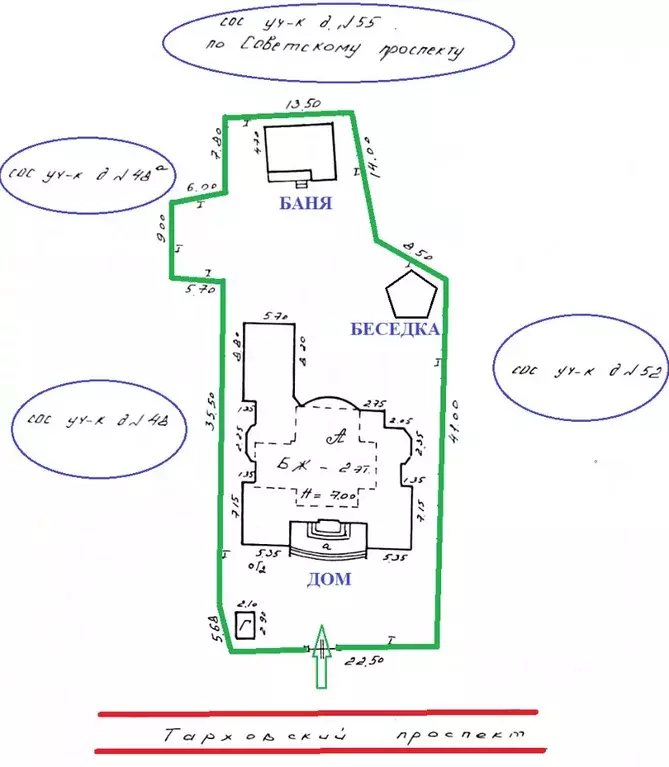 сос уч-к д.№55
по Советскому проспекту
13.50
7.80
4.70
14.00
сос уч-к д№48а
6.00
БАНЯ
9.00
8.50
5.70
БЕСЕДКА
5.70
8.80
8.20
сос уч-к д№52
1.35
2.75
2.05
сос уч-к д№48
35.50
2.25
А
2.35
41.00
БЖ-2эт.
1.35
Н=7.00
1.35
7.15
7.15
а
5.35
5.35
ДОМ
2.10
Г
2.90
5.68
22.50
Тарховский проспект